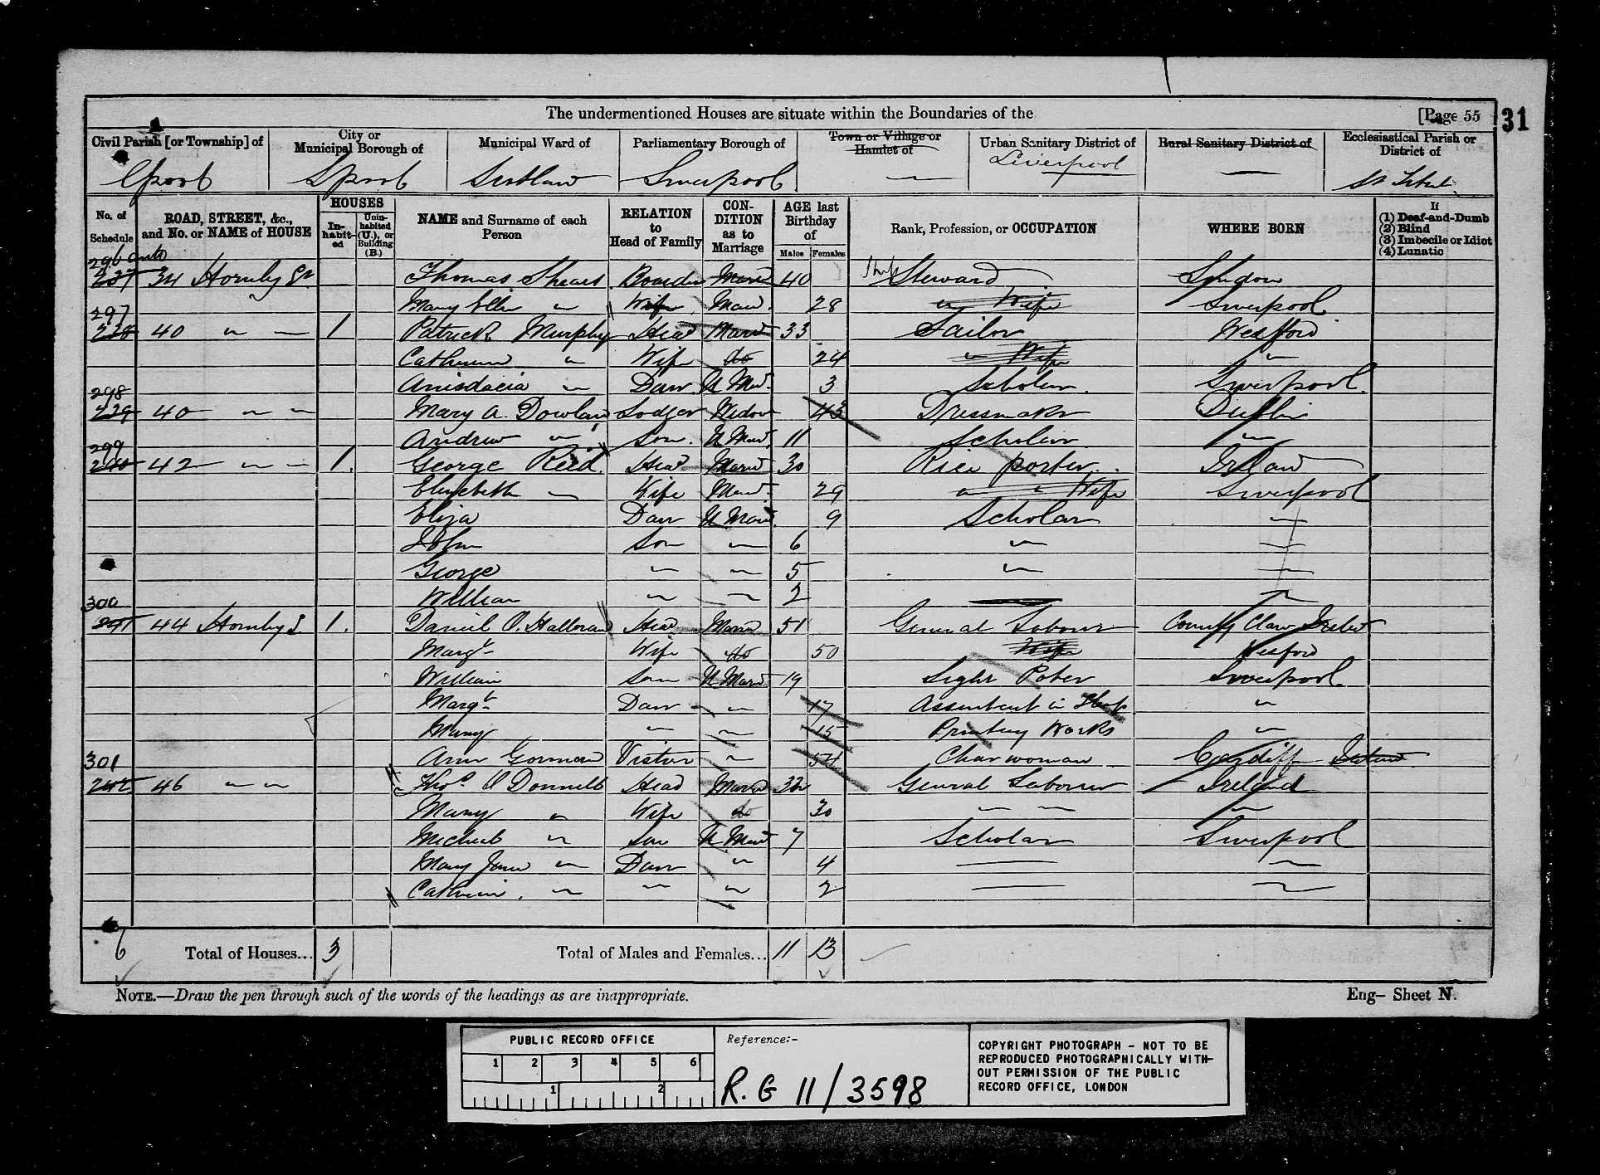 The undermentioned Houses are situate within the Boundaries of the [Page 55 31
Civil Parish [or Township] of City or Municipal Borough of Municipal Ward of Parliamentary Borough of Town or Village or Hamlet of Urban Sanitary District of Rural Sanitary District of Ecclesiastical Parish or District of
Lpool Lpool Scotland Liverpool — Liverpool — St
No. of Schedule ROAD, STREET, &c., and No. or NAME of HOUSE HOUSES In-habit-ed Unin-habited (U.), or Building (B.) NAME and Surname of each Person RELATION to Head of Family CON-DITION as to Marriage AGE last Birthday of Males Females Rank, Profession, or OCCUPATION WHERE BORN If (1) Deaf-and-Dumb (2) Blind (3) Imbecile or Idiot (4) Lunatic
296 34 Hornby St Thomas Shears Boarder Mard 40 Ships Steward London
Mary Ellen " Wife Mard 28 " Wife Liverpool
297
238 40 " — 1 Patrick Murphy Head Mard 33 Tailor Wexford
Catherine " Wife do 24 " Wife "
Daur U Mard 3 Scholar Liverpool
298
239 40 " " Mary A. Dowland Lodger Widow 43 Dressmaker Dublin
Andrew " Son U Mard 11 Scholar "
299
240 42 " " 1. George Reid. Head Mard 30 Rice porter Ireland
Elizabeth " Wife Mard 29 " " Wife Liverpool
Eliza Daur U Mard 9 Scholar "
John Son " 6 " "
George " " 5 " "
William " " 2 — "
300
241 44 Hornby S 1. Daniel O. Halloran Head Mard 51 General Labourer County Clare Ireland
Margt Wife do 50 Wife Wexford
William Son U Mard 19 Light Poter Liverpool
Margt Daur " 17 Assistant in Shop "
Mary " " 15 Printing Works "
Ann Gorman Visitor " 54 Charwoman Cardiff
301
242 46 " " Thos. O Donnell Head Mard 32 General Labourer Ireland
Mary " Wife do 30 " " "
Michael " Son U Mard 7 Scholar Liverpool
Mary Jane " Daur " 4 — "
Catherine. " " " 2 — "
6 Total of Houses... 3 Total of Males and Females... 11 13
NOTE.—Draw the pen through such of the words of the headings as are inappropriate. Eng– Sheet N.
PUBLIC RECORD OFFICE
1 2 3 4 5 6
1 2
Reference:-
R.G 11/3598
COPYRIGHT PHOTOGRAPH - NOT TO BE
REPRODUCED PHOTOGRAPHICALLY WITH-
OUT PERMISSION OF THE PUBLIC
RECORD OFFICE, LONDON